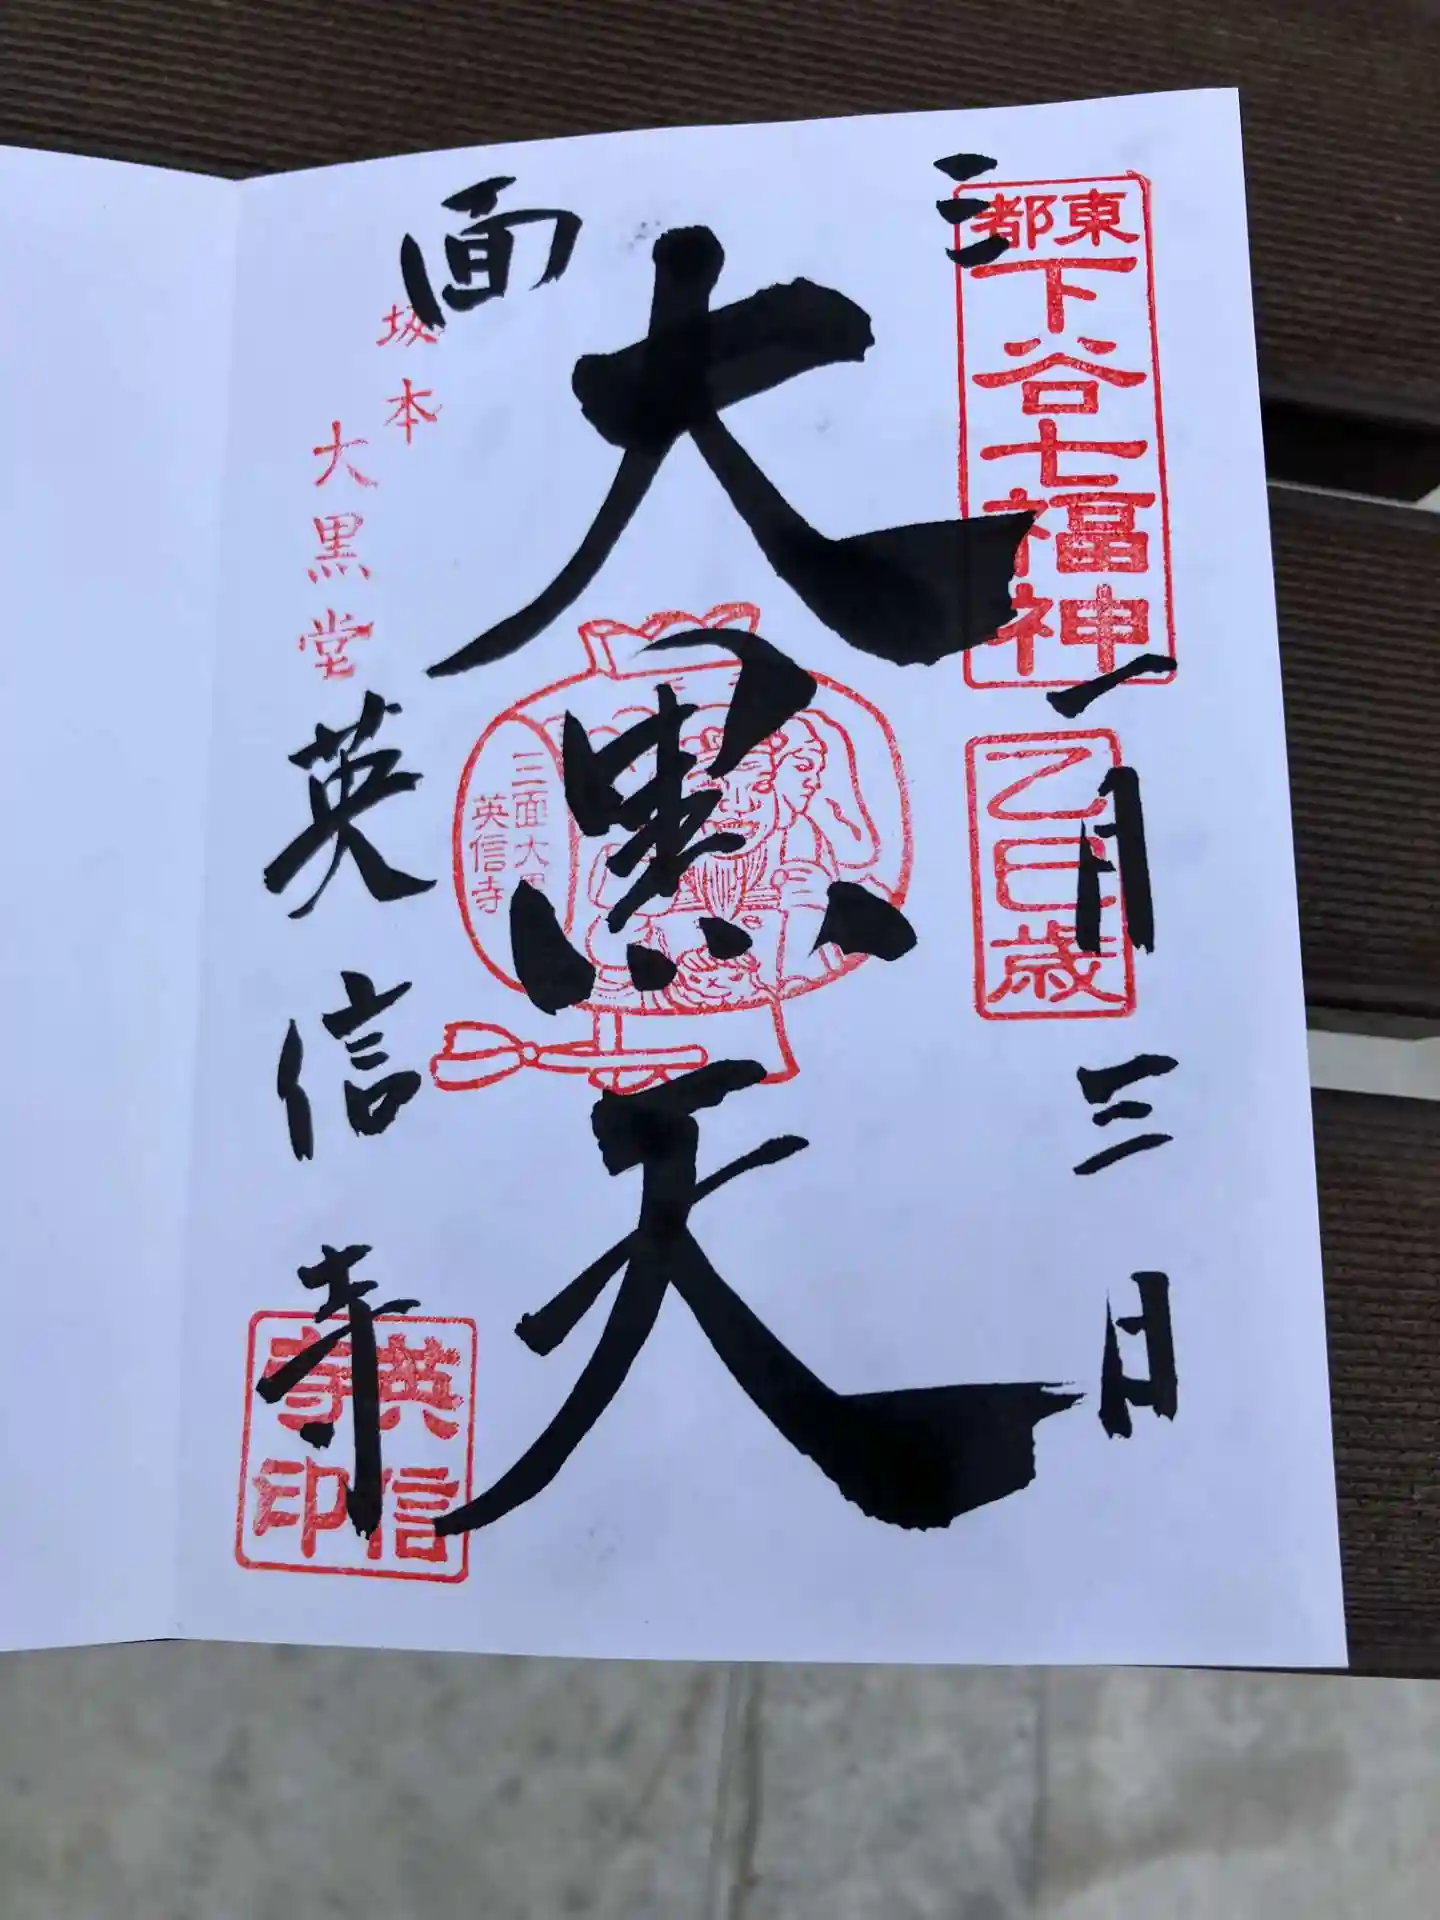 三面
東都
下谷七福神
乙巳歳
一月三日
大黒天
三面大黒
英信寺
坂本
大黒堂
英信寺
英信寺印